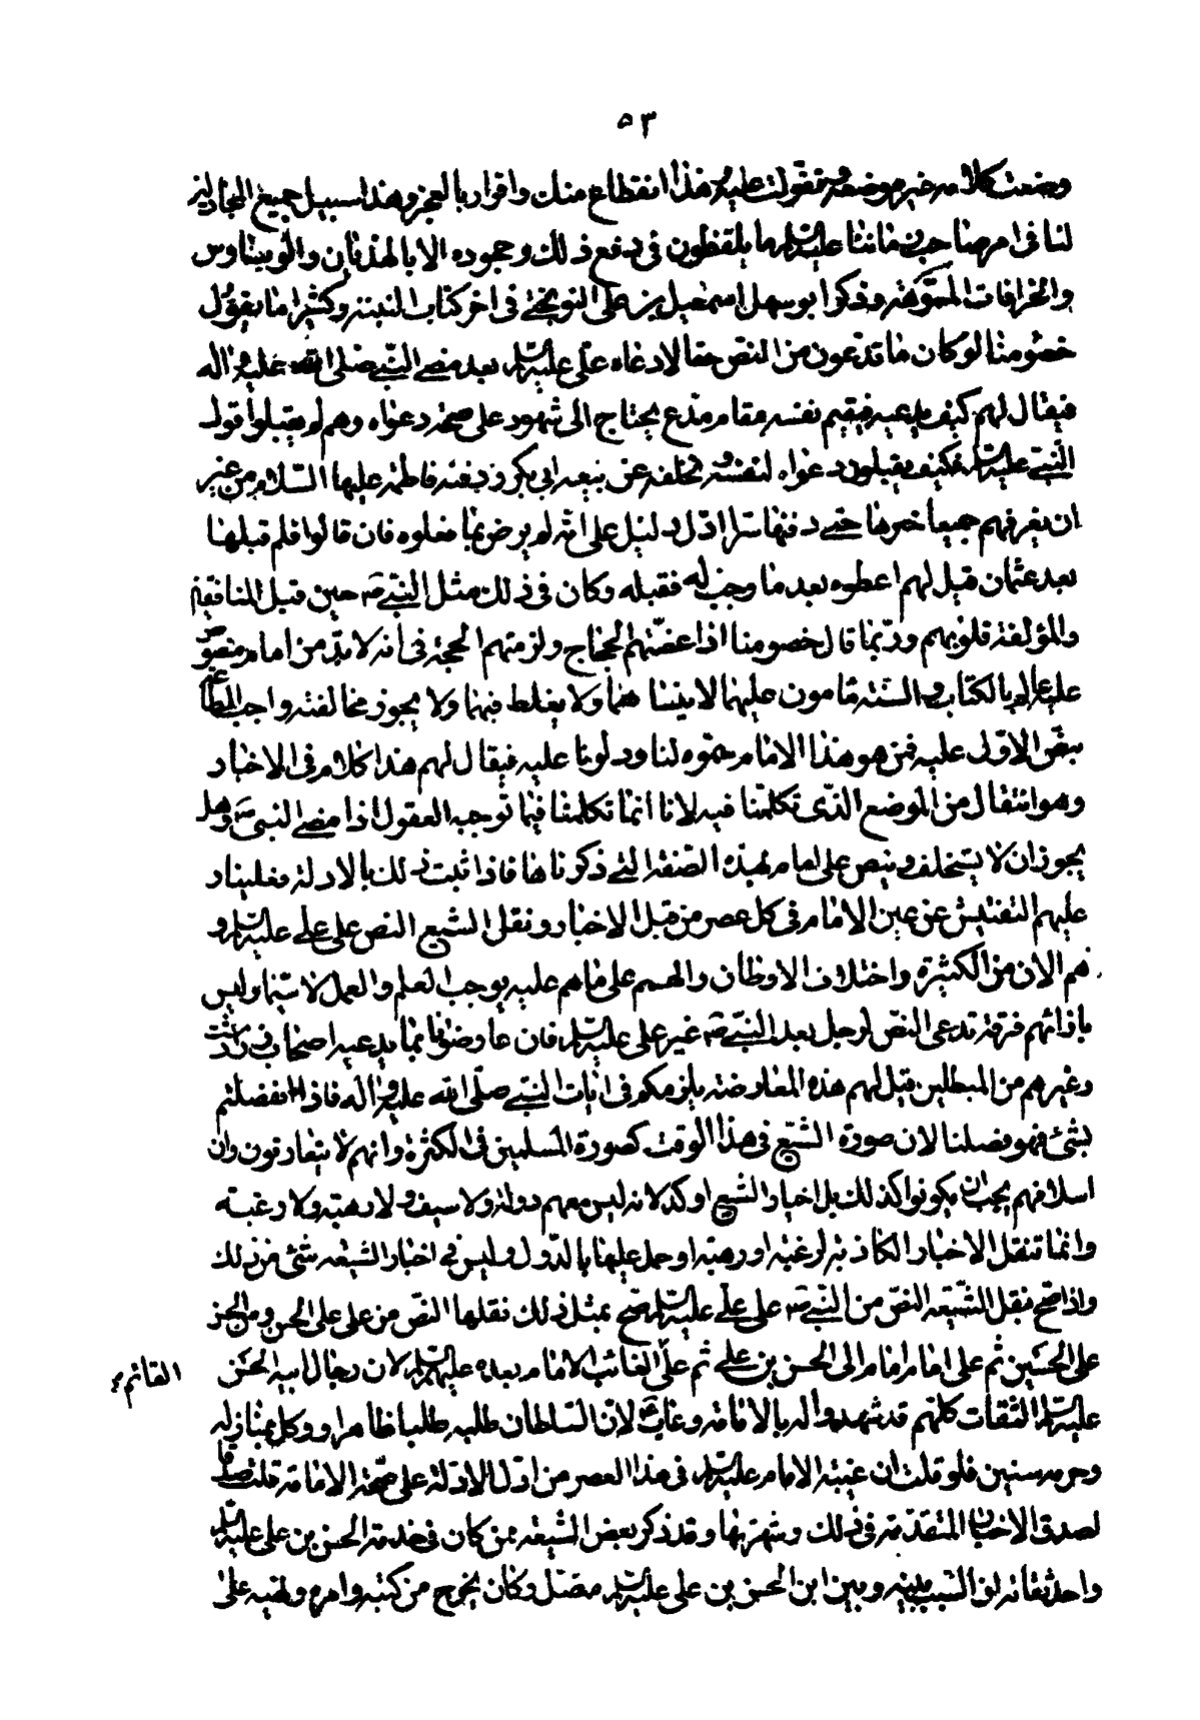 ٥٣
وضعت كلامه غير موضعه وتقولت عليه وهذا انقطاع منك واقرار بالعجز وهذا سبيل جميع المجادلين
لنا في امر صاحب زماننا عليه السلام ما يلفظون في دفع ذلك وجحوده الا بالهذيان والوساوس
والخرافات المموهة وذكر ابو سهل اسمعيل بن علي النوبختي في اخر كتاب التنبيه وكثيرا ما يقول
خصومنا لو كان ما تدعون من النص حقا لادعاه علي عليه السلام بعد مضي النبي صلى الله عليه واله
فيقال لهم كيف يدعيه فيقيم نفسه مقام مدع يحتاج الى شهود على صحة دعواه وهم لم يقبلوا قول
النبي عليه السلام فكيف يقبلون دعواه لنفسه وتخلفه عن بيعة ابي بكر ودفنه فاطمة عليها السلام من غير
ان يعرفهم جميعا خبرها حتى دفنها سرا ادل دليل على انه لم يرض بما فعلوه فان قالوا فلم قبلها
بعد عثمان قيل لهم اعطوه بعد ما وجب له فقبله وكان في ذلك مثل النبي ص حين قبل المنافقين
والمؤلفة قلوبهم وربما قال خصومنا اذا عضهم الحجاج ولزمتهم الحجة في انه لا بد من امام منصوص
عليه عالم بالكتاب والسنة مامون عليهما لا ينساهما ولا يغلط فيهما ولا يجوز مخالفته واجب الطاعة
بنص الاول عليه فمن هو هذا الامام سموه لنا ودلونا عليه فيقال لهم هذا كلام في الاخبار
وهو انتقال من الموضع الذي تكلمنا فيه لانا انما تكلمنا فيما توجبه العقول اذا مضى النبي ص وهل
يجوز ان لا يستخلف وينص على امام بهذه الصفة التي ذكرناها فاذا ثبت ذلك بالادلة فعلينا و
عليهم التفتيش عن عين الامام في كل عصر من قبل الاخبار ونقل الشيع النص على علي عليه السلام و
هم الان من الكثرة واختلاف الاوطان والهمم على ما هم عليه يوجب العلم والعمل لا سيما وليس
بازائهم فرقة تدعي النص لرجل بعد النبي ص غير علي عليه السلام فان عارضونا بما يدعيه اصحاب زرادشت
وغيرهم من المبطلين قيل لهم هذه المعارضة يلزمكم في ايات النبي صلى الله عليه واله فاذا انفصلتم
بشئ فهو فصلنا لان صورة الشيع في هذا الوقت كصورة المسلمين في الكثرة وانهم لا يتعارفون وان
اسلافهم يجب ان يكونوا كذلك بل اخبار الشيع اوكد لانه ليس معهم دولة ولا سيف ولا رهبة ولا رغبة
وانما تنقل الاخبار الكاذبة لرغبة او رهبة او حمل عليها بالدول وليس في اخبار الشيعة شئ من ذلك
واذا صح نقل الشيعة النص من النبي ص على علي عليه السلام صح بمثل ذلك نقلها النص من علي على الحسن ومن الحسن
على الحسين ثم على امام امام الى الحسن بن علي ثم على الغائب الامام بعده عليهم السلام لان رجال ابيه الحسن
القائم
عليه السلام الثقات كلهم قد شهدوا له بالامامة وغاب ع لان السلطان طلبه طلبا ظاهرا ووكل بمنازله
وحرمه سنين فلو قلت ان غيبة الامام عليه السلام في هذا العصر من ادل الادلة على صحة الامامة قلت صدقا
لصدق الاخبار المتقدمة في ذلك وشهرتها وقد ذكر بعض الشيعة ممن كان في خدمة الحسن بن علي عليه السلام
واحد ثقاته ان السبب بينه وبين ابن الحسن بن علي عليه السلام متصل وكان يخرج من كتبه وامره ونهيه على